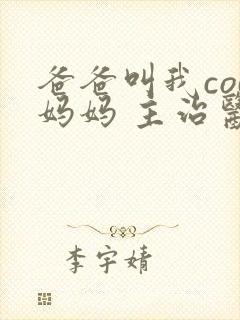 爸爸叫我co
妈妈 主治醫
李宇婧